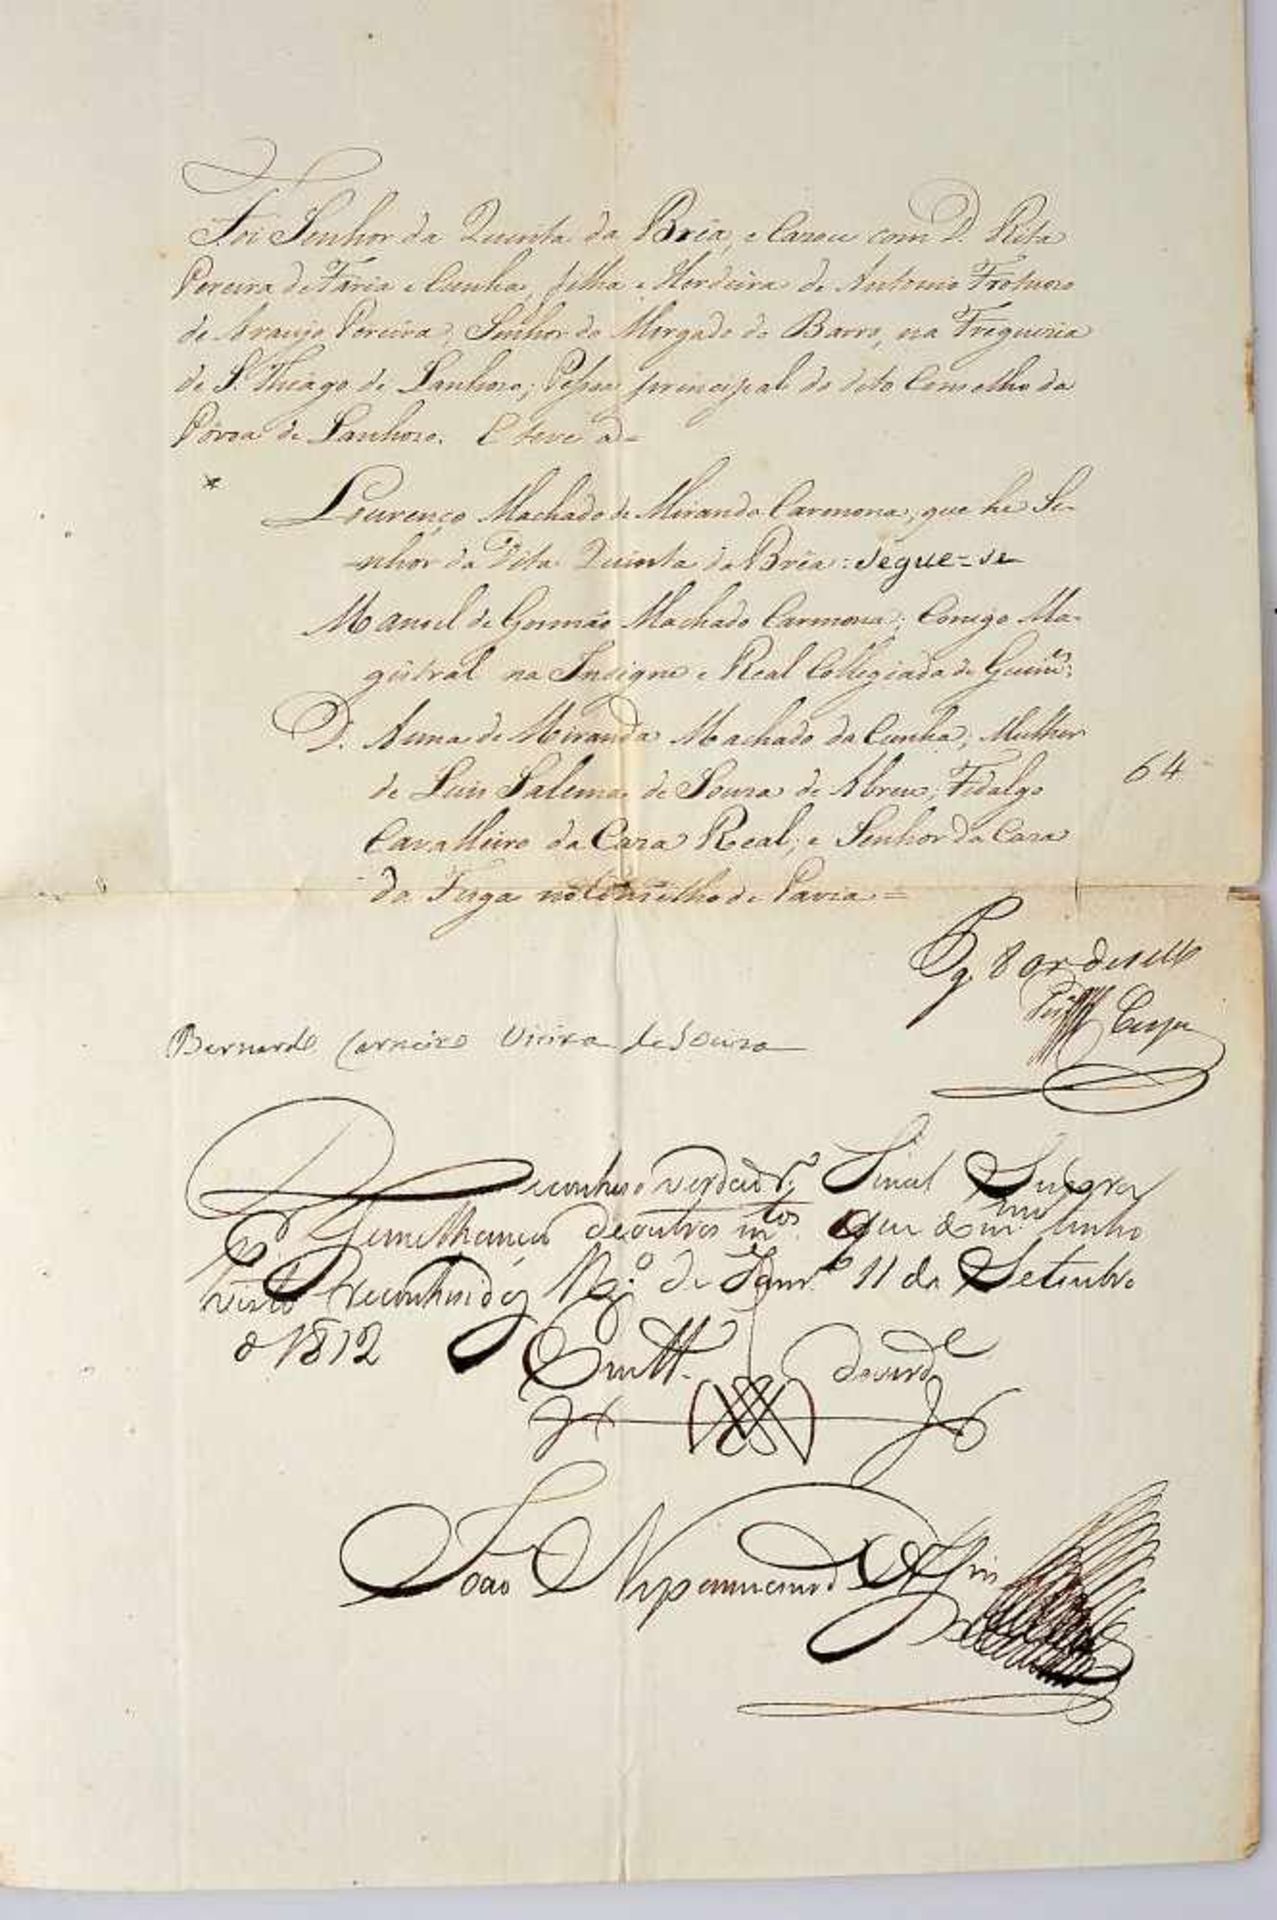 Foi Senhor da Quinta da Brêa, e Cazou com D. Rita
Pereira de Faria e Cunha, filha e Herdeira de Antonio Frotuozo
de Araujo Pereira, Senhor do Morgado do Barro, na Fregueria
de S. Thiago de Lanhozo; Pessoa principal do dito Conselho da
Póvoa de Lanhozo. E teve a =
Lourenço Machado de Miranda Carmona, que he Se-
nhor da dita Quinta da Brêa = segue-se
Manoel de Gusmão Machado Carmona; Conego Ma-
gistral na Insigne e Real Collegiada de Guim.es;
D. Anna de Miranda Machado da Cunha, Mulher
de Luis Salema de Souza de Abreu, Fidalgo
Cavalleiro da Caza Real, e Senhor da Caza
da no Conselho de Pavia =
64
Pg. 80 rs de sello
Bernardo Carneiro Vieira de Souza
Reconheso verdad.ro Sinal Supra
Semelhança de outros m.tos que em tenho
visto Reconhecido Rº. de Janr.º 11 de Setembro
d 1812
Em tt. de verd.e
João Nepomuceno de Assis